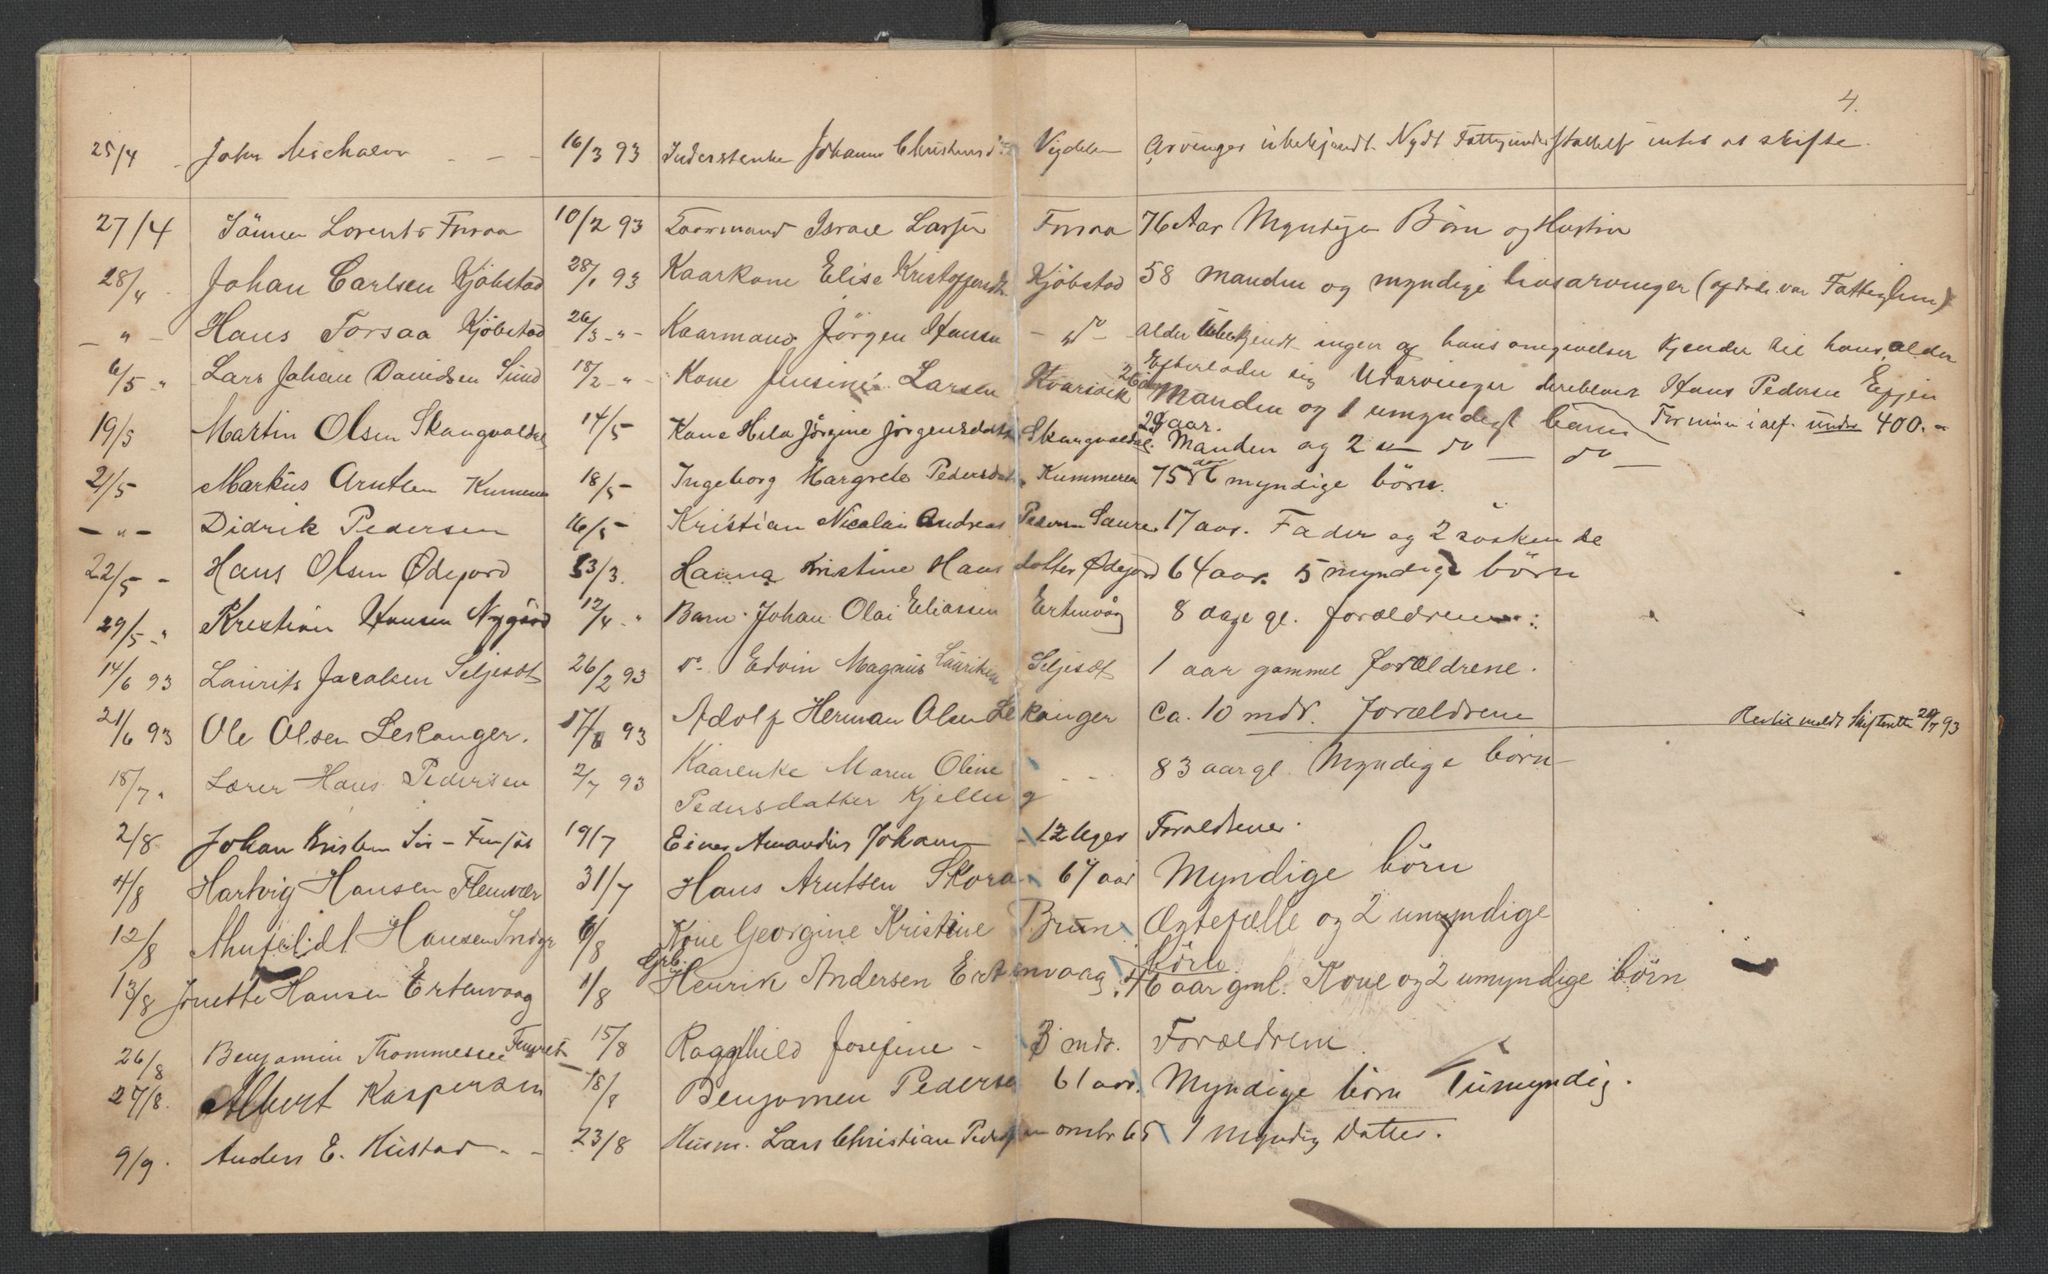 4.
25/4 - John Michalsen - - - 16/3 93 Inderstenke Johanna Christensd Vigdelen Arvinger ubekjendt. Nydt Fattigunderstøttelse intet at skifte.
27/4 Lorents Forsaa 10/2 93 Israel Larsen Forsaa 76 Aar Myndige Börn og Hustru
28/4 - Johan Carlsen Kjöbstad 28/1 93 Kaarkone Elise Kristoffersdt Kjöbstad 58 Manden og myndige livsarvinger (afdøde var Fattiglem)
- " - Hans Forsaa Kjöbstad 26/3 - " - Kaarmand Jörgen Hansen - do - alder ubekjendt ingen af hans omgivelser kjender til hans alder
Efterlader sig Udarvinger deriblandt Hans Pedersen
6/5 - " Lars Johan Danidsen Sund 18/2 - " - Kone Jensine Larsen Kvarsvik 26 Manden og 1 umyndigt barn Formuen i alf. under 400.-
19/5 Martin Olsen Skaugvoldal 14/5 Kone Hela Jörgine Jörgensdatter Skaugvoldal. 29 aar. Manden og 2 - do - do -
21/5 Markus Arntsen Kummeren 18/5 - Ingeborg Margrete Pedersdat. Kummeren 75 aar 6 myndige börn.
- " - Didrik Pedersen 16/5 - Kristian Nicolai Andreas Pedersen Saure 17 aar. Fader og 2 söskende
22/5 - Hans Olsen Ødejord 33/3. Hanna Kristine Hansdatter Ødejord 64 aar. 5 myndige börn
29/5 - " Kristian Hansen Nygård 12/4 - " Barn. Johan Olai Eliassen Ertenvåg 8 dage gl. forældrene :
14/6 93 Laurits Jacobsen Seljesæt 26/2 93 do Edvin Magnus Lauritsen Seljesæt 1 aar gammel forældrene.
21/6 93 Ole Olsen Leskanger. 17/6 93 Adolf Herman Olsen Leskanger Ca. 10 mdr. forældrene meldt Skifteretten 93
18/7 " Lærer Hans Pedersen 2/7 93 Kaarenke Maren Oline - - - 83 aar gl. Myndige börn -
Pedersdatter Kjelling
2/8 Johan Kristen Sör - 19/7 Einar Amandus Johan - 12 Uger Forældrene.
4/8 Hartvig Hansen Flenvær 31/7 Hans Arntsen Skora 67 aar Myndige börn
12/8 Hansen Indyr 6/8 Kone Georgine Kristine Brun Ægtefælle og 2 umyndige
börn
13/8 Jonette Hansen Ertenvaag 11/8 Grb. Henrik Andersen Ertenvaag, 46 aar gml. Kone og 2 umyndige börn
26/8 Benjamin Thommessen 15/8 Ragnhild Josefine - 3 mdr. Forældrene
27/8. Albert Kaspersen 18/8 Benjamin Pedersen 61 aar. Myndige börn 1 umyndig.
9/9. Anders E. Hustad - - 23/8 Husm. Lars Christian Pedersen omtr 65 1 Myndig Datter.